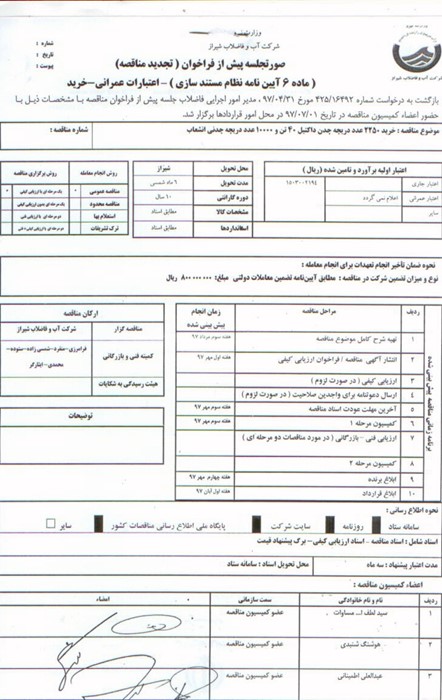 وزارت نیرو
شرکت آب و فاضلاب شیراز
صورتجلسه پیش از فراخوان ( تجدید مناقصه)
( ماده ۶ آیین نامه نظام مستند سازی ) - اعتبارات عمرانی-خرید
شماره :
تاریخ :
پیوست :
شرکت آب و فاضلاب شیراز
بازگشت به درخواست شماره ۴۲۵/۱۶۴۹۲ مورخ ۹۷/۰۴/۳۱ ، مدیر امور اجرایی فاضلاب جلسه پیش از فراخوان مناقصه با مشخصات ذیل با
حضور اعضاء کمیسیون مناقصه در تاریخ ۹۷/۰۷/۰۱ در محل امور قراردادها برگزار شد.
موضوع مناقصه : خرید ۲۲۵۰ عدد دریچه چدن داکتیل ۴۰ تن و ۱۰۰۰۰ عدد دریچه چدنی انشعاب
شماره مناقصه :
اعتبار اولیه برآورد و تامین شده (ریال)
اعتبار جاری
اعتبار عمرانی
اعلام نمی گردد
سایر
محل تحویل
شیراز
مدت تحویل
۶ ماه شمسی
دوره گارانتی
۱۰ سال
مشخصات کالا
مطابق اسناد
استانداردها
مطابق اسناد
روش انجام معامله
روش برگزاری مناقصه
مناقصه عمومی
یک مرحله ای با ارزیابی کیفی
مناقصه محدود
یک مرحله ای بدون ارزیابی کیفی
استعلام بها
دو مرحله ای با ارزیابی فنی
ترک تشریفات
نحوه ضمان تأخیر انجام تعهدات برای انجام معامله :
نوع و میزان تضمین شرکت در مناقصه : مطابق آیین‌نامه تضمین معاملات دولتی مبلغ: ۸۰۰ ۰۰۰ ۰۰۰ ریال
برنامه زمانی مناقصه پیش بینی شده
ردیف
مراحل مناقصه
زمان انجام پیش بینی شده
۱ تهیه شرح کامل موضوع مناقصه هفته سوم مرداد ۹۷
۲ انتشار آگهی مناقصه / فراخوان ارزیابی کیفی هفته اول مهر ۹۷
۳ ارزیابی کیفی ( در صورت لزوم )
۴ ارسال دعوتنامه برای واجدین صلاحیت ( در صورت لزوم )
۵ آخرین مهلت عودت اسناد مناقصه هفته سوم مهر ۹۷
۶ کمیسیون مرحله ۱ هفته سوم مهر ۹۷
۷ ارزیابی فنی - بازرگانی ( در مورد مناقصات دو مرحله ای )
۸ کمیسیون مرحله ۲
۹ ابلاغ برنده هفته چهارم مهر ۹۷
۱۰ ابلاغ قرارداد هفته اول آبان ۹۷
ارکان مناقصه
مناقصه گزار
شرکت آب و فاضلاب شیراز
کمیته فنی و بازرگانی
فرامرزی-منفرد-شمسی زاده-ستوده-
محمدی-ایثارگر
هیئت رسیدگی به شکایات
توضیحات
نحوه اطلاع رسانی :
سامانه ستاد
روزنامه
سایت شرکت
پایگاه ملی اطلاع رسانی مناقصات کشور
سایر
اسناد شامل : اسناد مناقصه - اسناد ارزیابی کیفی - برگ پیشنهاد قیمت
مدت اعتبار پیشنهاد : سه ماه
محل تحویل اسناد : سامانه ستاد
اعضاء کمیسیون مناقصه :
ردیف نام و نام خانوادگی سمت سازمانی امضاء
۱ سید لطف ا... مساوات عضو کمیسیون مناقصه
۲ هوشنگ شنبدی عضو کمیسیون مناقصه
۳ عبدالعلی اطمینانی عضو کمیسیون مناقصه